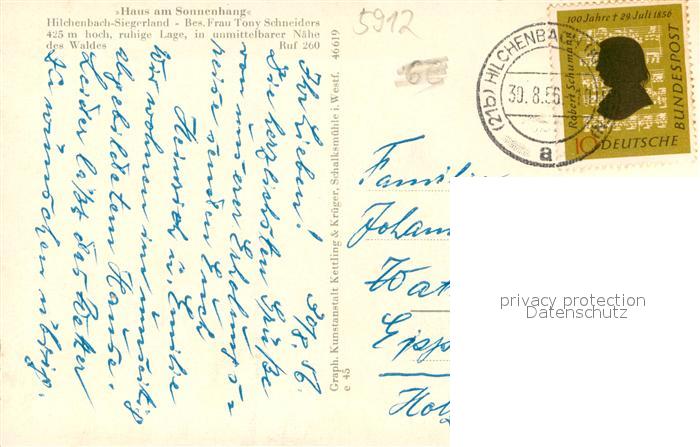 »Haus am Sonnenhang«
Hilchenbach-Siegerland - Bes. Frau Tony Schneiders
425 m hoch, ruhige Lage, in unmittelbarer Nähe
des Waldes Ruf 260
5912
6€
46619
Graph. Kunstanstalt Kettling & Krüger, Schalksmühle i. Westf.
e 45
30/8. 56.
Ihr Lieben!
Die herzlichsten Grüße
von unserer Erholungs-
reise senden Euch
Heinrich u. Emilie
Wir wohnen in umseitig
abgebildetem Hause.
Leider läßt das Wetter
zu wünschen übrig.
(21b) HILCHENBACH
30.8.56
a
100 Jahre † 29. Juli 1856
Robert Schumann
10 DEUTSCHE
BUNDESPOST
Familie
Johan
Wat
Gipp
Hol
privacy protection
Datenschutz